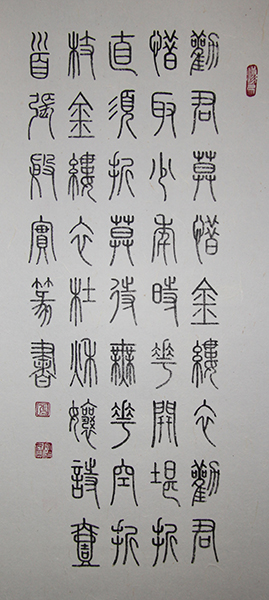 勸君莫惜金縷衣勸君
惜取少年時花開堪折
直須折莫待無花空折
枝金縷衣杜秋孃詩壹
首張殿實篆書